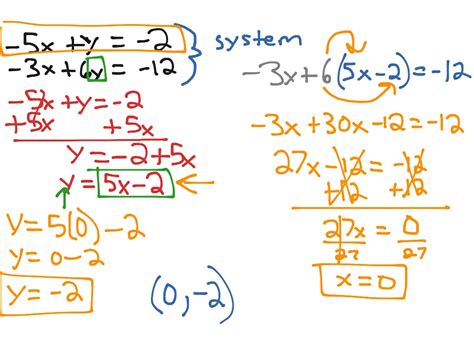 -5x + y = -2
-3x + 6y = -12
system
-5x + y = -2
+5x +5x
y = -2 + 5x
y = 5x - 2
y = 5(0) - 2
y = 0 - 2
y = -2
(0, -2)
-3x + 6(5x - 2) = -12
-3x + 30x - 12 = -12
27x - 12 = -12
+12 +12
27x = 0
27 27
x = 0